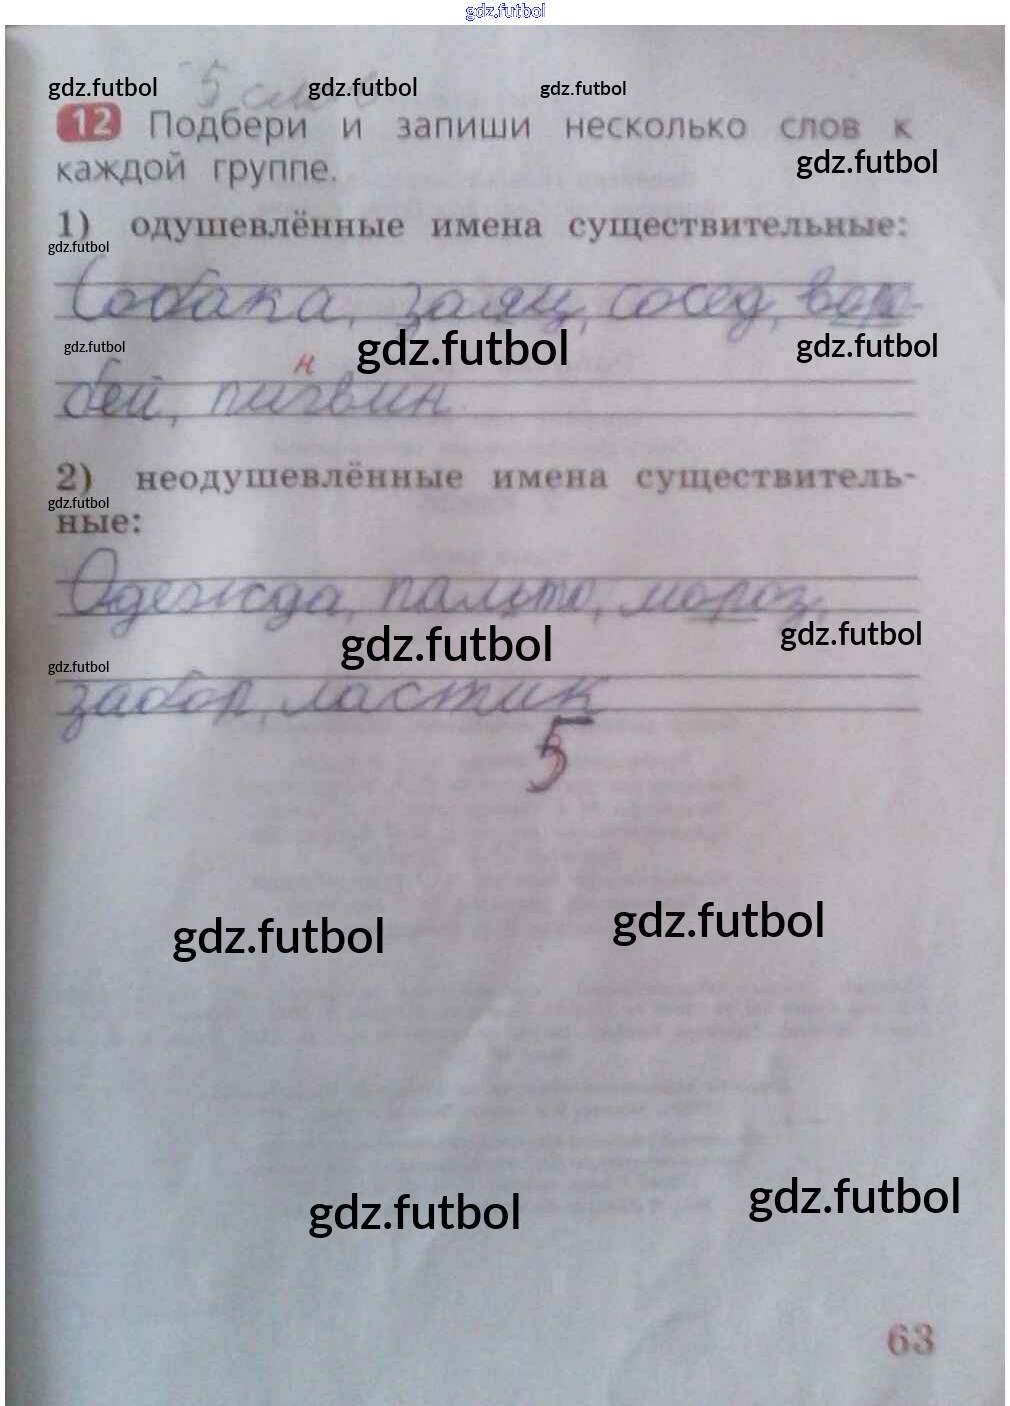 gdz.futbol
5 слов
gdz.futbol gdz.futbol gdz.futbol
12 Подбери и запиши несколько слов к
gdz.futbol
каждой группе.
1) одушевлённые имена существительные:
gdz.futbol
Собака, заяц, сосед, воро-
gdz.futbol gdz.futbol gdz.futbol
н
бей, пигвин.
2) неодушевлённые имена существитель-
gdz.futbol
ные:
Одежда, пальто, мороз,
gdz.futbol gdz.futbol
gdz.futbol
забор, ластик
5
gdz.futbol gdz.futbol
gdz.futbol gdz.futbol
63